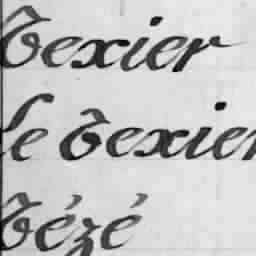 Texier
le Texier
Tézé